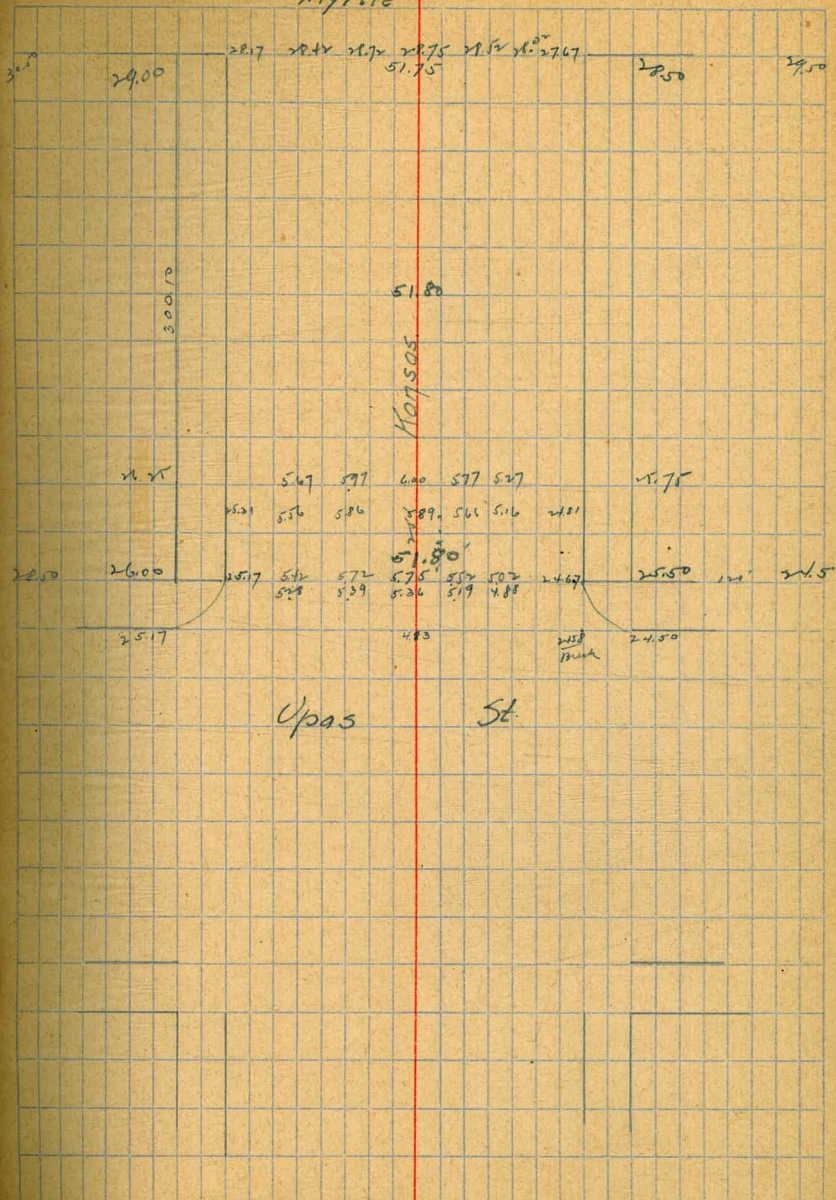 Myrtle
28.17 28.42 28.72 28.75 28.52 28.02 27.67
30.50 29.00 51.75 28.50 29.50
300.10
51.80
Kansas
26.25 5.67 5.97 6.00 5.77 5.27 25.75
25.31 5.56 5.86 5.89 5.66 5.16 24.81
51.80
28.50 26.00 25.17 5.42 5.72 5.75 5.52 5.02 24.67 25.50 24.5
5.28 5.39 5.36 5.19 4.88
25.17 4.83 24.58 24.50
Upas St.